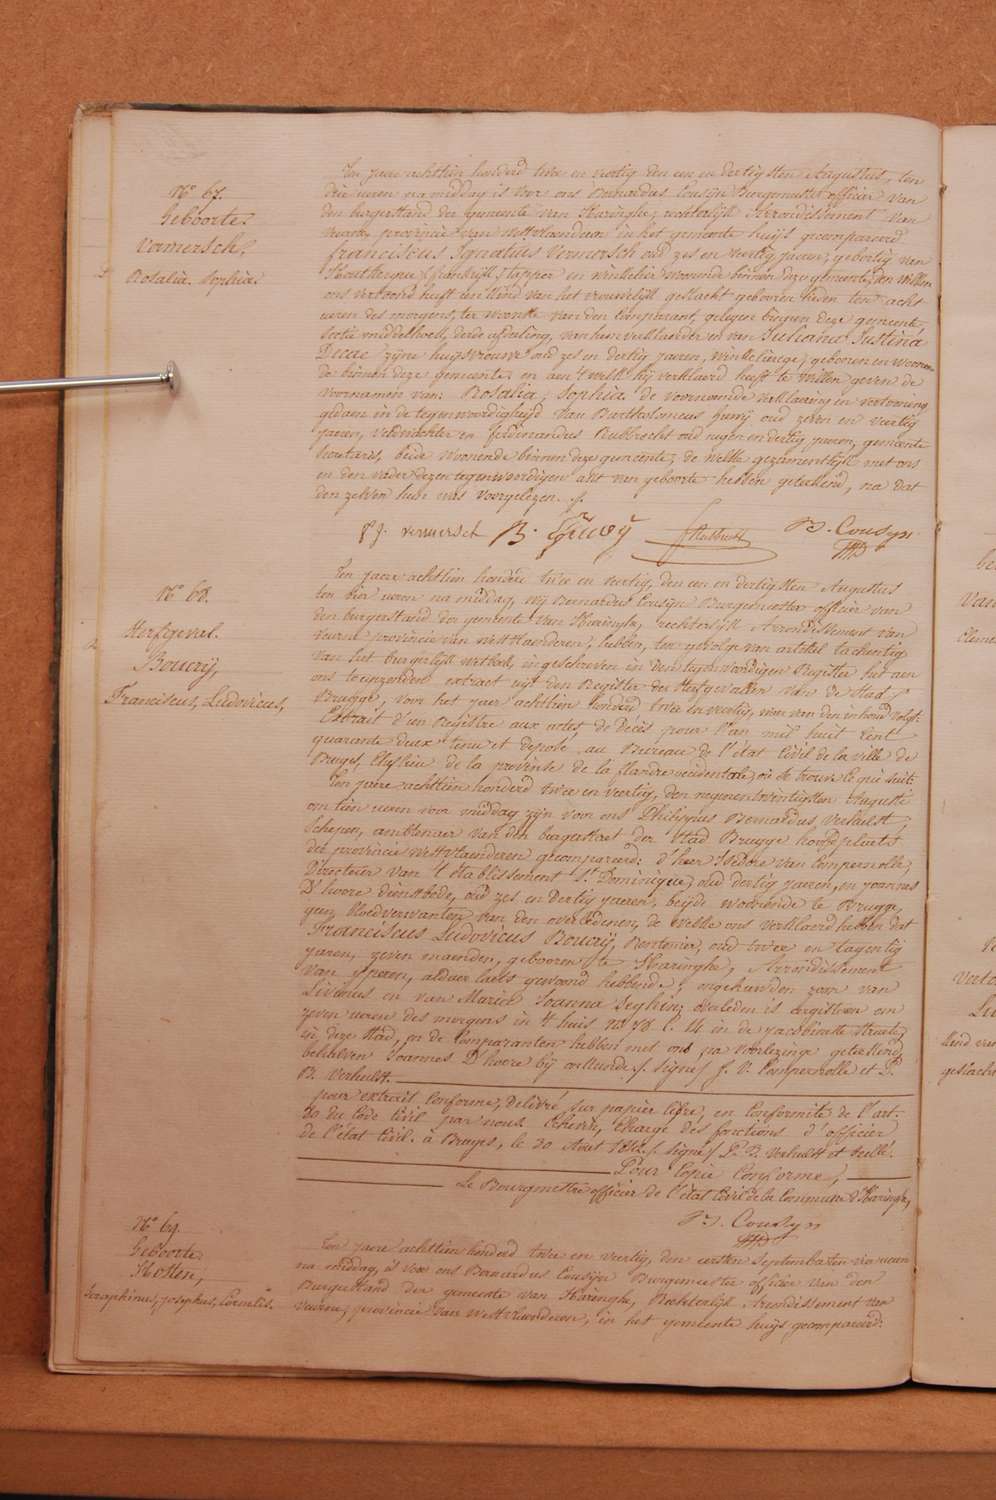 N.º 67.
Geboorte.
Vermersch,
Rosalia. Sophia.
Ten jaere achttien honderd twee en veertig den een en dertigsten Augustus, ten
drie ueren na middag is voor ons Bernardus Cousijn Burgemeester officier van
den burgerstand der gemeente van Haringhe, rechterlijk Arrondissement van
veurne, provincie van westvlaenderen in het gemeente huijs gecompareerd
franciscus Ignatius Vermersch oud zes en veertig jaeren, geboortig van
Houtkerque /: frankrijk :/ stapper en winkelier woonende binnen deze gemeente, den welken
ons vertoond heeft een kind van het vrouwelijk geslacht gebooren heden ten acht
ueren des morgens, ter woonste van den comparant, gelegen binnen deze gemeente
sectie middelhoek, derde afdeeling, van hem verklaerder en van Juliana Justina
Decae zijne huijsvrouwe oud zes en dertig jaeren, winkelierege, gebooren en woonen
de binnen deze gemeente, en aen 't welk hij verklaerd heeft te willen geven de
voornamen van: Rosalia, Sophia. de voornoemde verklaering en vertooning
gedaen in de tegenwoordigheijd van Bartholomeus Gurvij oud zeven en veertig
jaeren, veldwachter en ferdinandus Bubbrecht oud negen en dertig jaeren, gemeente
secretaris, beide woonende binnen deze gemeente; de welke gezamentlijk met ons
en den vader dezen tegenwoordigen akt van geboorte hebben geteekend, na dat
den zelven hun was voorgelezen. /.
f. j. vermersch B. Gurvÿ B. Cousyn
N.º 68.
Sterfgeval.
Boucrij,
Franciscus, Ludovicus,
Ten jaere achttien honderd twee en veertig, den een en dertigsten Augustus
ten vier ueren na middag, wij Bernardus Cousijn Burgemeester officier van
den burgerstand der gemeente van Haringhe, rechterlijk Arrondissement van
veurne provincie van westvlaenderen, hebben, ten gevolge van artikel tachentig
van het burgerlijk wetboek, ingeschreven in den tegenwoordigen Register het aen
ons toegezonden extract uijt den Register der sterfgevallen van de stad
Brugge, voor het jaer achttien honderd twee en veertig, waer van den inhoud volgt:
Extrait d'un Registre aux actes de Décès pour l'an mil huit Cent
quarante deux tenu et déposé au Bureau de l'état Civil de la ville de
Bruges, Chef-lieu de la province de la flandre occidentale, où se trouve ce qui suit:
Ten jaere achttien honderd twee en veertig, den negenentwintigsten Augusti
om tien ueren voor middag zijn voor ons Philippus Bernardus Verhulst,
Schepen, ambtenaer van den burgerstaet der stad Brugge hoofdplaets
der provincie westvlaenderen gecompareerd: d'heer Isidore van Compernolle,
Directeur van 't établissement St. Dominique, oud dertig jaeren, en joannes
D'hoore dienstbode, oud zes en dertig jaeren, beijde woonende te Brugge,
geen bloedverwanten van den overledenen, de welke ons verklaerd hebben dat
Franciscus Ludovicus Boucrij, Rentenier, oud twee en tagentig
jaren, zeven maenden, gebooren te Haringhe, Arrondissement
van ijperen, aldaer laets gewoond hebbende, ongehuwden zoon van
Livinus en van Maria Joanna Seghin, overleden is eergisteren om
zeven ueren des morgens in 't huis n.º 78 C. 14 in de jacobinesse straete,
in deze stad, en de Comparanten hebben met ons na voorlezinge geteekend
behalven Joannes D'hoore bij onkunde. /. signé / J. V. Compernolle et P.
B. Verhulst.
pour extrait Conforme, Délivré sur papier libre, en Conformité de l'art.
80 du Code Civil par nous Echevin, Chargé des fonctions d'officier
de l'état Civil. à Bruges, le 30 Aout 1842. /. signé / P. B. Verhulst et scellé.
Pour Copie Conforme,
Le Bourgmestre officier de l'état Civil de la Commune d'Haringhe,
B. Cousyn
N.º 69.
Geboorte.
Hollen,
Seraphinus, josephus, Cornelis.
Ten jaere achttien honderd twee en veertig, den eersten September ten vier ueren
na middag, is voor ons Bernardus Cousijn Burgemeester officier van den
Burgerstand der gemeente van Haringhe, Rechterlijk Arrondissement van
veurne, provincie van westvlaenderen, in het gemeente huijs gecompareerd: